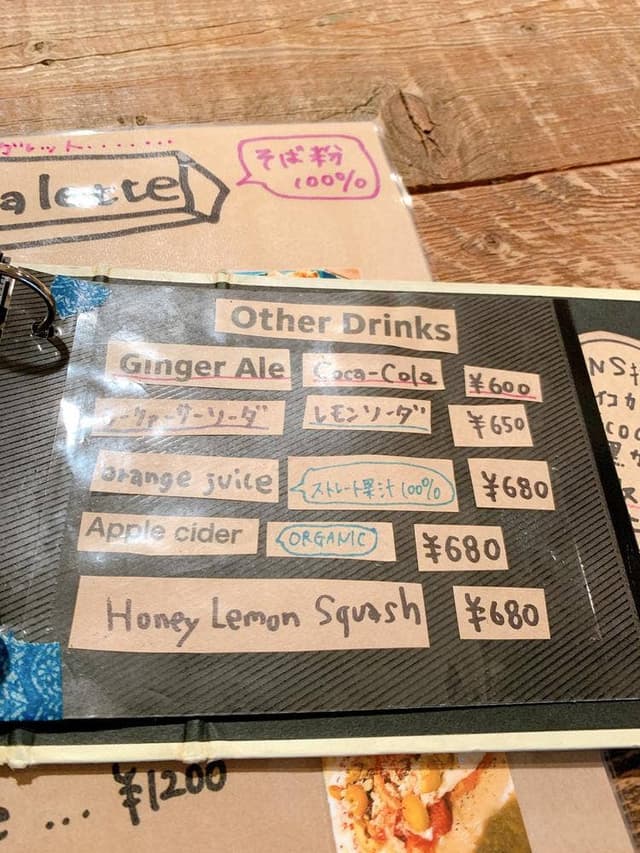 ガレット........
alette
そば粉
100%
Other Drinks
Ginger Ale Coca-Cola ¥600
レモンソーダ ¥650
orange juice ストレート果汁100% ¥680
Apple cider ORGANIC ¥680
Honey Lemon Squash ¥680
... ¥1200